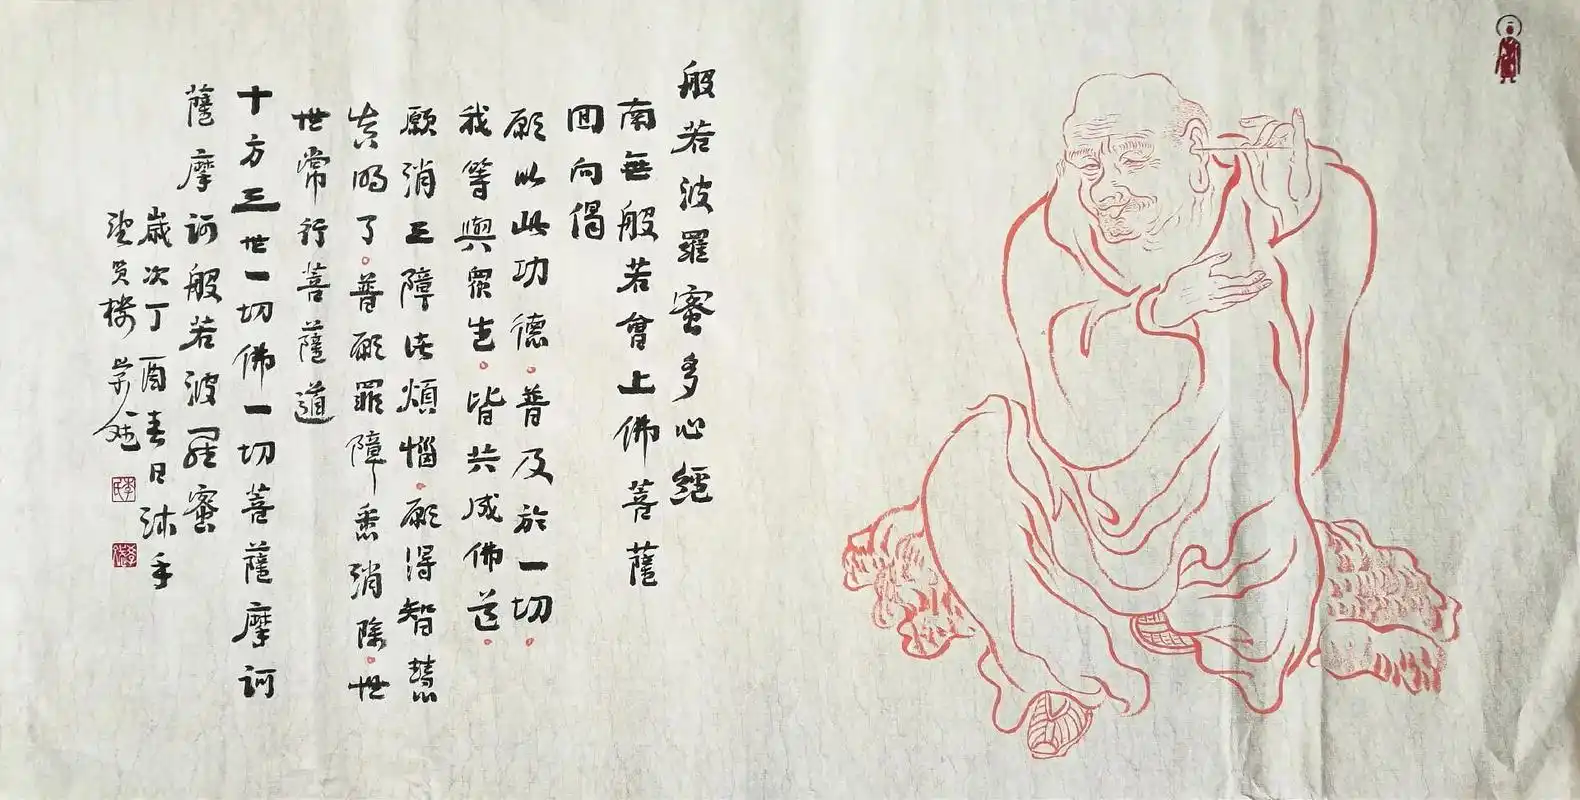 般若波羅蜜多心經
南無般若會上佛菩薩
回向偈
願以此功德。普及於一切。
我等與眾生。皆共成佛道。
願消三障诸煩惱。願得智慧
真明了。普願罪障悉消除。世
世常行菩薩道
十方三世一切佛一切菩薩摩訶
薩摩訶般若波羅蜜
歲次丁酉春日沐手